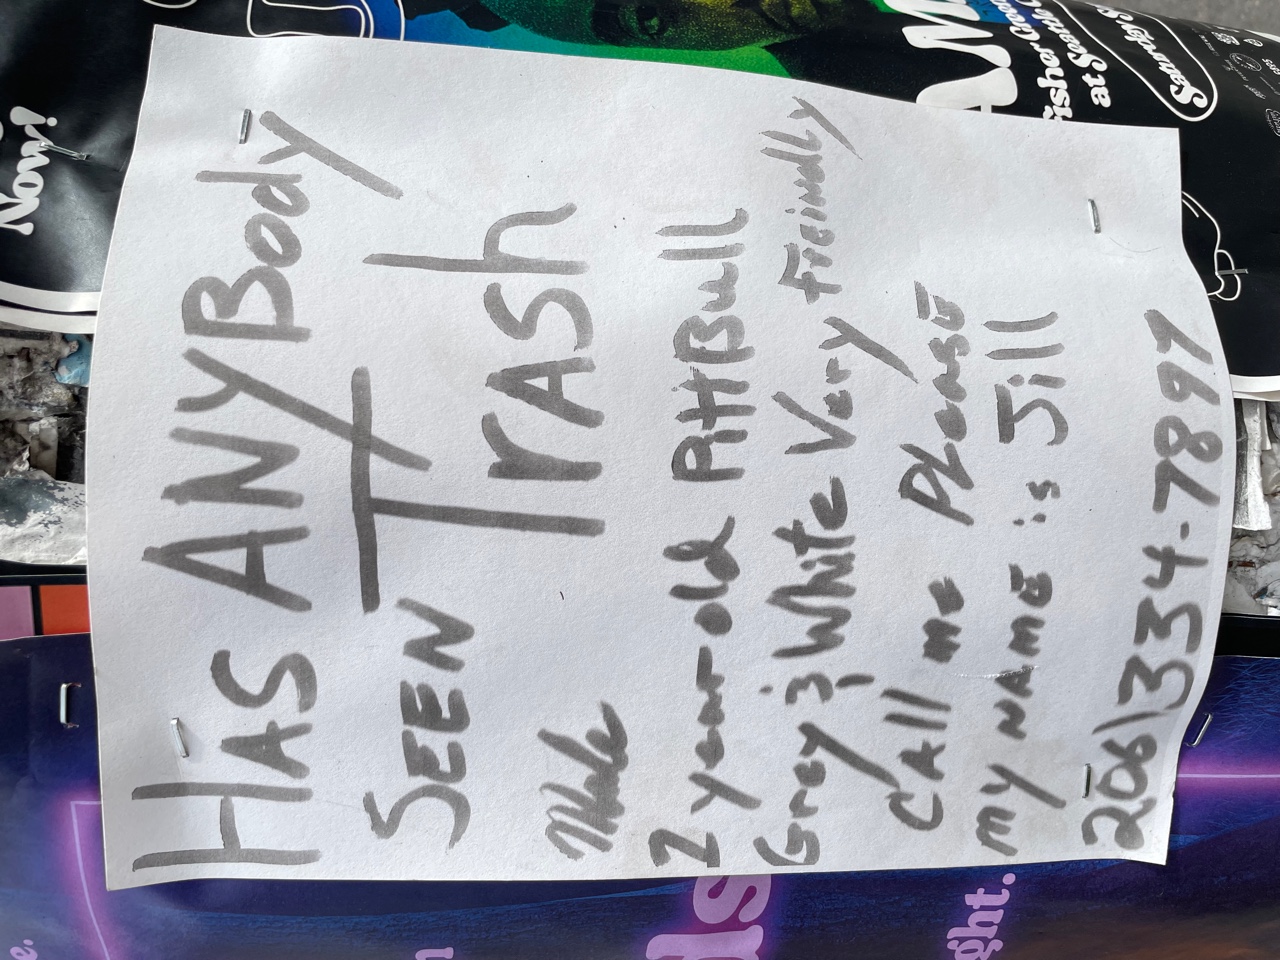 HAS ANYBody
SEEN TrASh
Male
2 year old PitBull
Grey & White Very Freindly
CAll me PLeasE
my NAmE is Jill
206)334-7897
Now!
AM
Fisher Green
at Seattle C
Saturday S
ds
ght.
e.